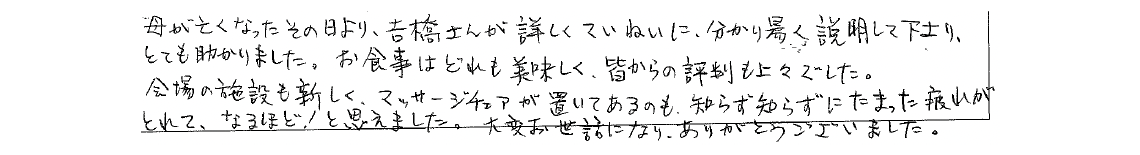 母が亡くなったその日より、吉橋さんが詳しくていねいに、分かり易く説明して下さり、
とても助かりました。お食事はどれも美味しく、皆からの評判も上々でした。
会場の施設も新しく、マッサージチェアが置いてあるのも、知らず知らずにたまった疲れが
とれて、なるほど!と思えました。大変お世話になり、ありがとうございました。